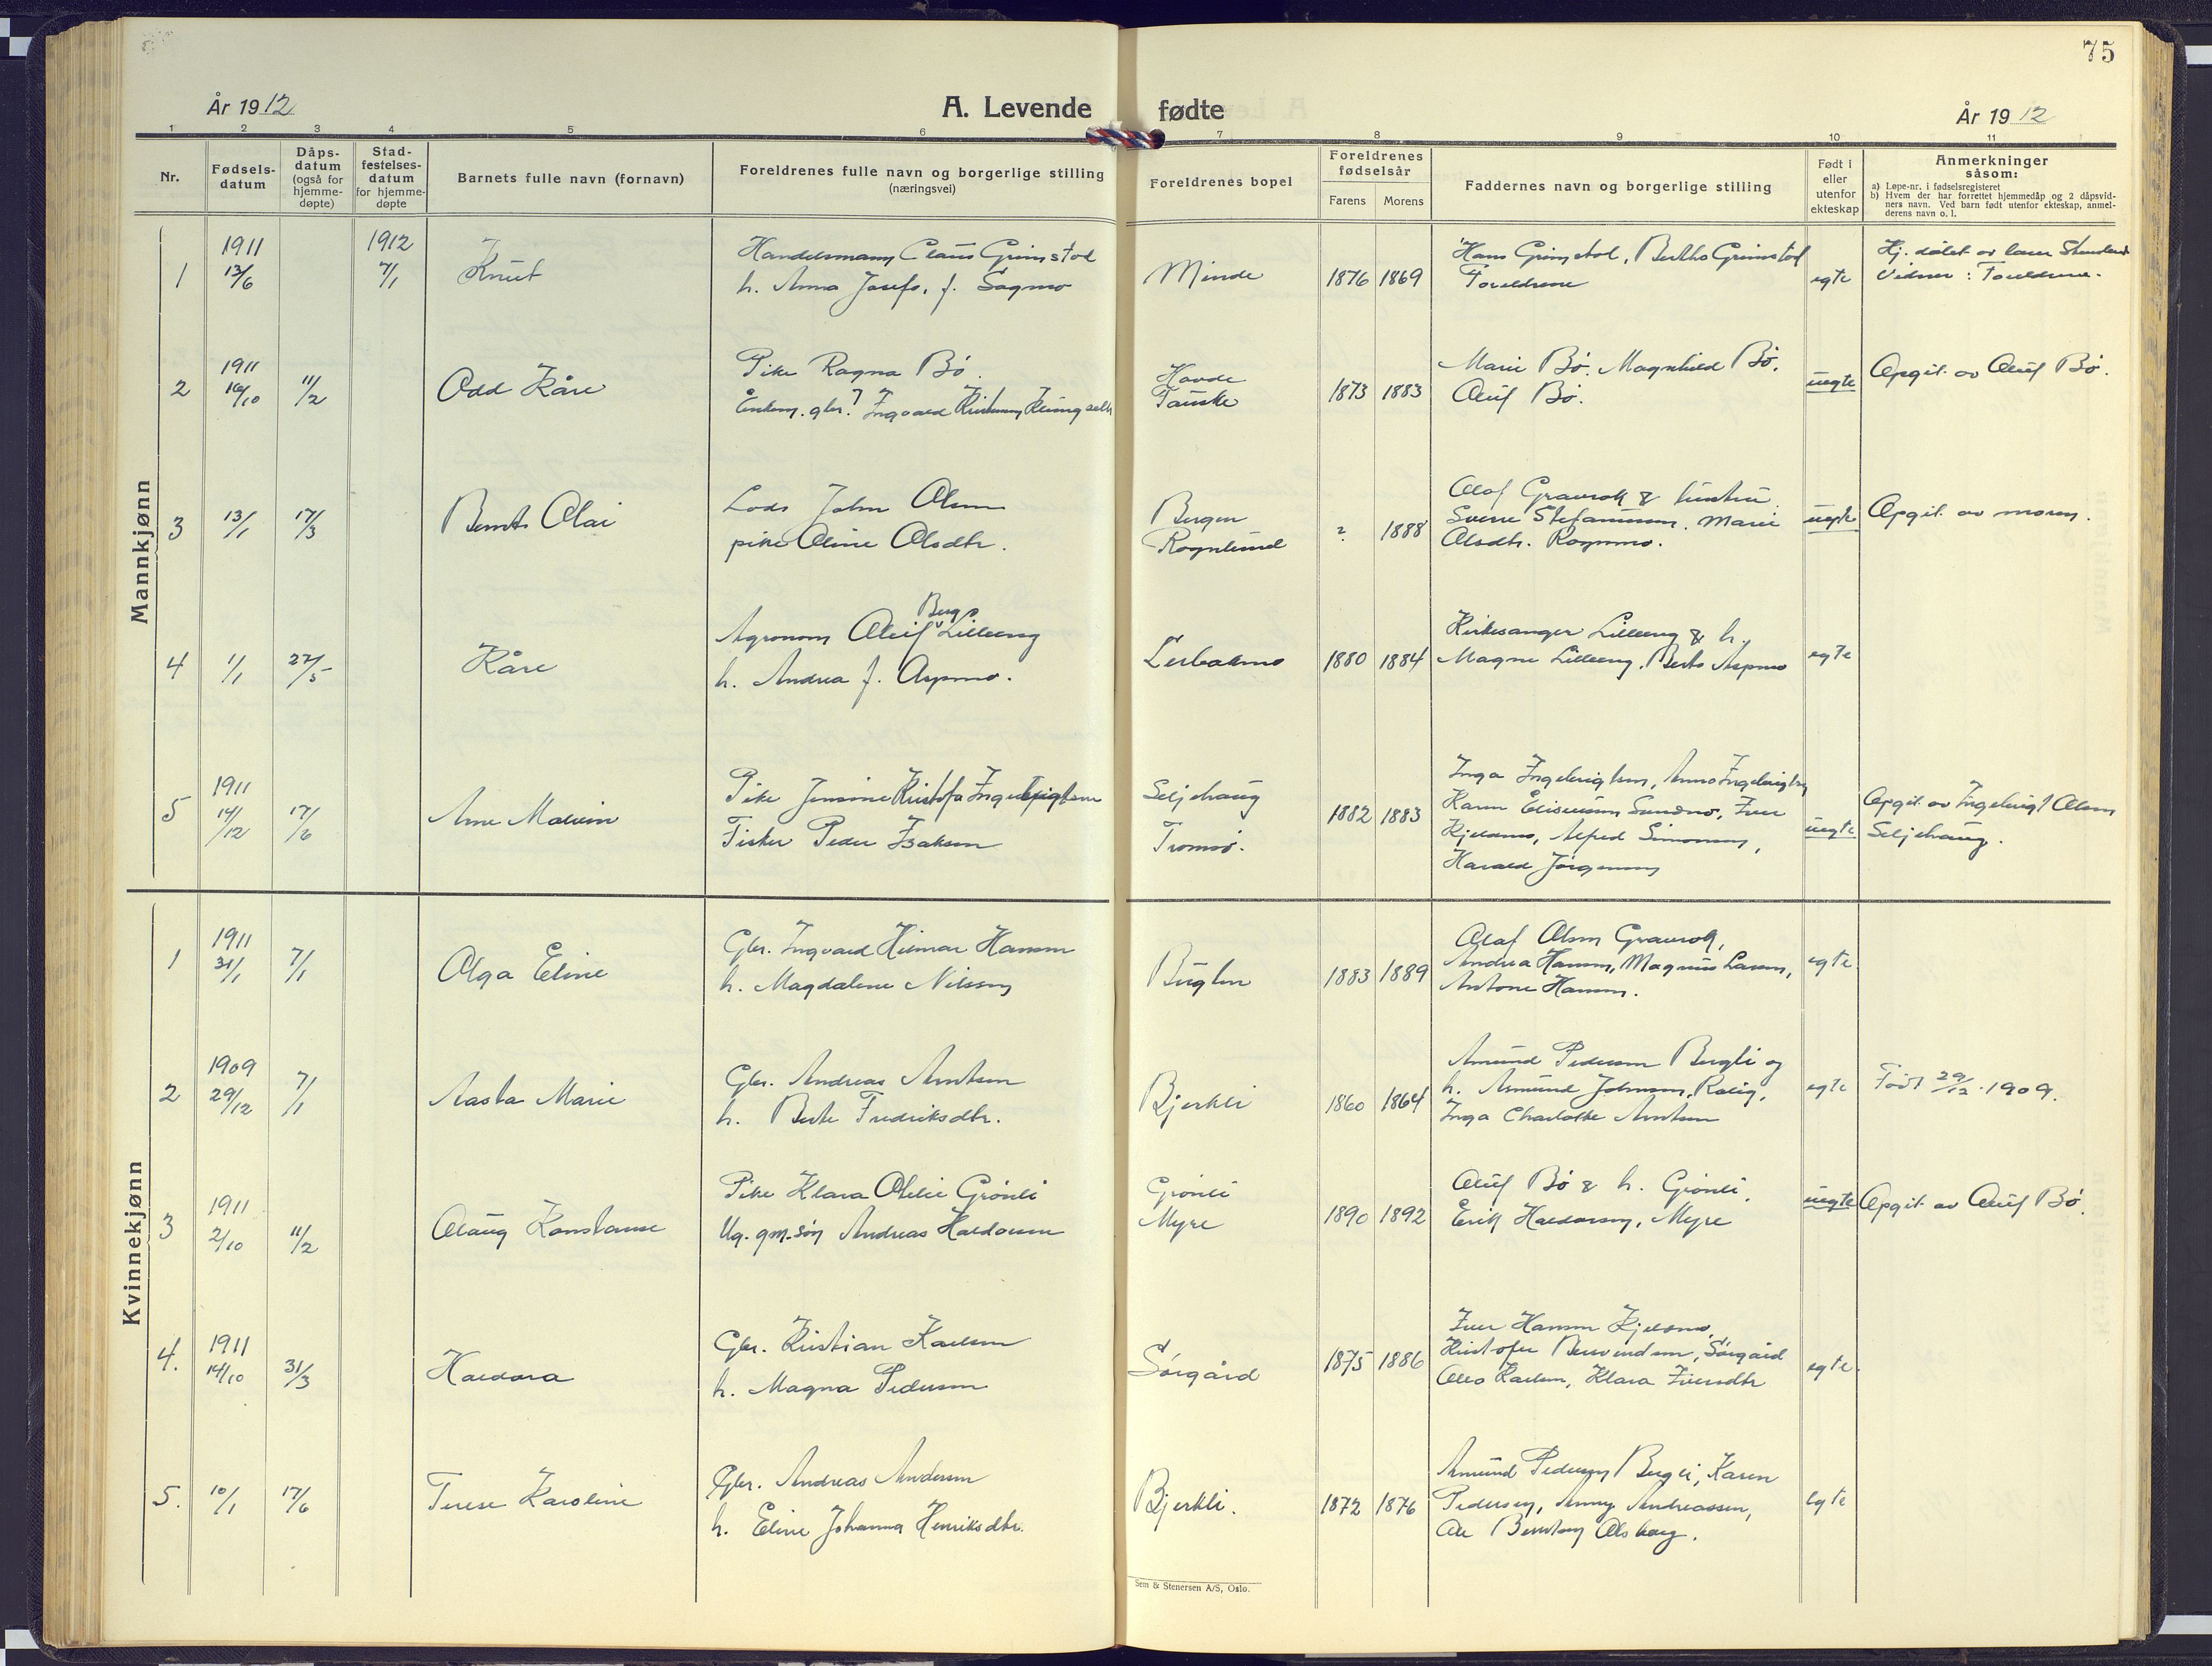 75
År 1912
A. Levende fødte
År 1912
1 2 3 4 5 6 7 8 9 10 11
Nr.
Fødsels-
datum
Dåps-
datum
(også for
hjemme-
døpte)
Stad-
festelses-
datum
for hjemme-
døpte
Barnets fulle navn (fornavn)
Foreldrenes fulle navn og borgerlige stilling
(næringsvei)
Foreldrenes bopel
Foreldrenes
fødselsår
Farens Morens
Faddernes navn og borgerlige stilling
Født i
eller
utenfor
ekteskap
Anmerkninger
såsom:
a) Løpe-nr. i fødselsregisteret
b) Hvem der har forrettet hjemmedåp og 2 dåpsvid-
ners navn. Ved barn født utenfor ekteskap, anmel-
derens navn o. l.
Mannkjønn
1
1911
13/6
1912
7/1
Knut
Handelsmann Claus Grimstad
h. Anna Josefs. f. Sagmo
Minde
1876 1869
Hans Grimstad, Bertha Grimstad
Foreldrene
egte
Vidner: Foreldrene.
2
1911
16/10
11/2
Odd Kåre
Pike Ragna Bø.
Enkem. gbr. ? Ingvard
Fauske
1873 1883
Marie Bø. Magnhild Bø.
Oluf Bø.
uegte
Opgit. av Oluf Bø.
3
13/1
17/3
Bernt Olai
Lods John Olsen
pike Oline Olsdtr.
Bergen
Rognlund
? 1888
Olaf Graurok & hustru
Sverre Stefanussen. Marie
Olsdtr. Rognmo.
uegte
Opgit. av moren.
4
1/1
27/5
Kåre
Bergs
Agronom Oluf Lilleeng
h. Andrea f. Aspmo.
1880 1884
Kirkesanger Lilleeng & h.
Magne Lilleeng, Aspmo
egte
5
1911
14/12
17/6
Arne Malvin
Pike Jensine Kristofa Ingebrigtsen
Fisker Peder Isaksen
Seljehaug
Tromsø.
1882 1883
Inga Ingebrigtsen, Anna Ingebrigtsen
Karen Eliseussen Sundmo, Iver
Kjelsmo, Alfred Simonsen,
Harald Jørgensen
uegte
Opgit. av Ingebrigt Olsen
Seljehaug.
Kvinnekjønn
1
1911
31/1
7/1
Olga Eline
Gbr. Ingvard Hilmar Hansen
h. Magdalene Nilssen
1883 1889
Olaf Olsen Graurok,
Andrea Hansen, Magnus Larsen,
Antone Hansen.
egte
2
1909
29/12
7/1
Aasta Marie
Gbr. Andreas Arntsen
h. Berte Fredriksdtr.
Bjerkli
1860 1864
Amund Pedersen Bergli og
h. Asmund Johnsen, Rolig,
Inga Charlotte Arntsen
egte
Født 29/12 1909.
3
1911
2/10
11/2
Olaug Konstanse
Pike Klara Otelie Grönli
Ug. gm.søn Andreas Haldorsen
Grönli
Myre
1890 1892
Oluf Bø & h. Grönli,
Erik Haldorsen, Myre
uegte
Opgit av Oluf Bø.
4.
1911
14/10
31/3
Haldora
Gbr. Kristian Karlsen
h. Magna Pedersen
Sörgård
1875 1886
Iver Hansen Kjelsmo,
Kristofer Berwendsen, Sörgård
Karlsen, Klara Iversdtr
egte.
5.
10/1
17/6
Terese Karoline
Gbr. Andreas Andersen
h. Eline Johanna Henriksdtr.
Bjerkli.
1872 1876
Amund Pedersen Bergli, Karen
Pedersen, Anny Andreassen,
Ole Berntsen Olsborg.
egte
Sem & Stenersen A/S, Oslo.